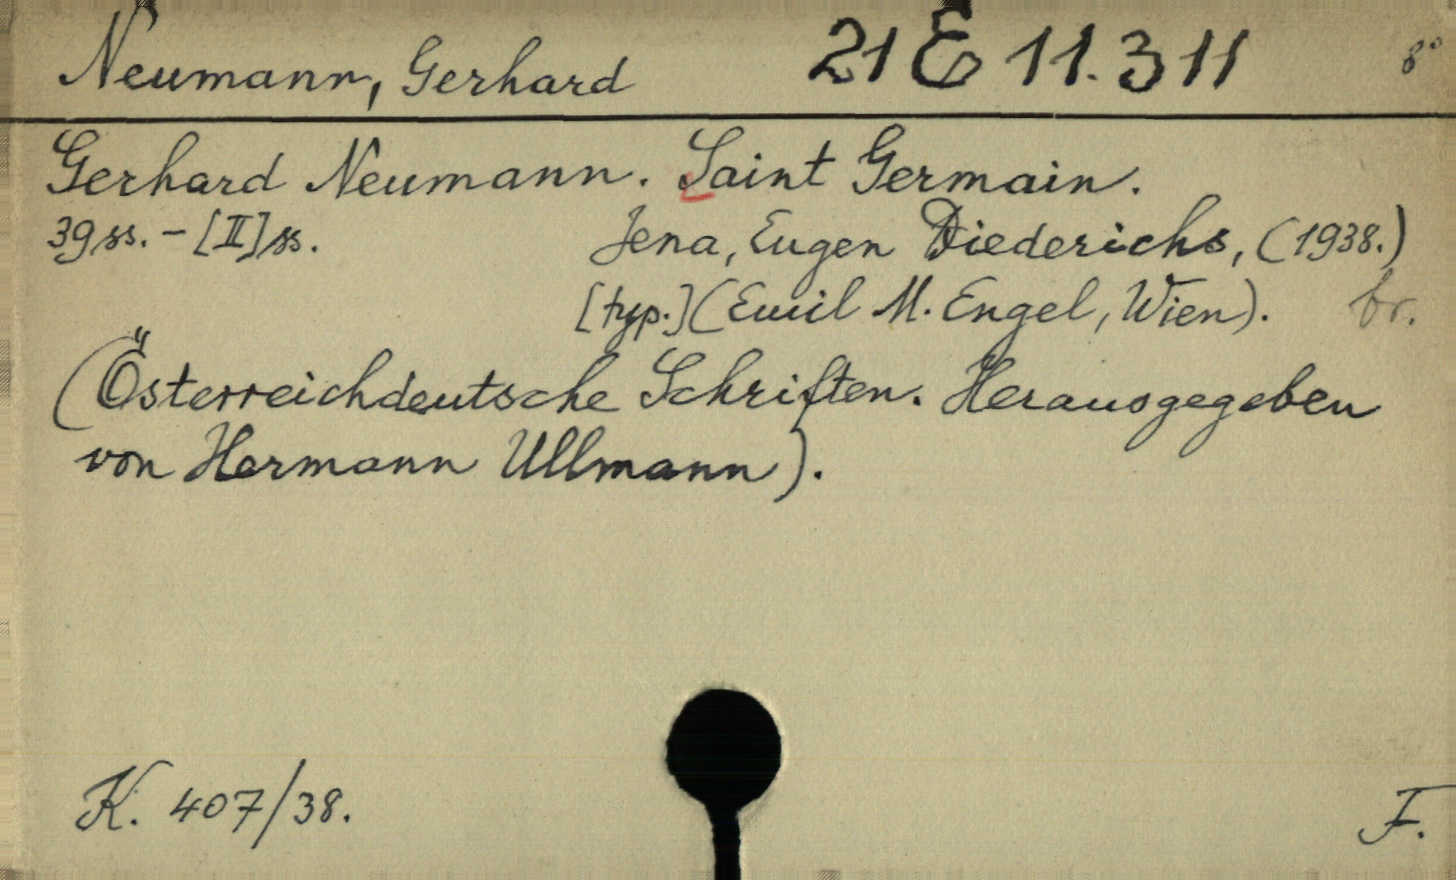 Neumann, Gerhard 21 E 11.311 8°
Gerhard Neumann. Saint Germain.
39 ss. - [II] ss. Jena, Eugen Diederichs, (1938.)
[typ.] (Emil M. Engel, Wien). br.
(Österreichdeutsche Schriften. Herausgegeben
von Hermann Ullmann).
K. 407/38. F.